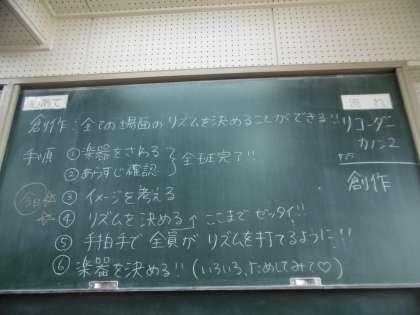 めあて
流れ
創作：全ての場面のリズムを決めることができる!!
手順 ①楽器をさわる
②あらすじ確認 全球完了!!
今日
③ イメージを考える
④ リズムを決める ← ここまでゼッタイ!!
⑤ 手拍手で全員がリズムを打てるように!!
⑥ 楽器を決める!! (いろいろためしてみて♡)
リコーダー
カノン2
創作